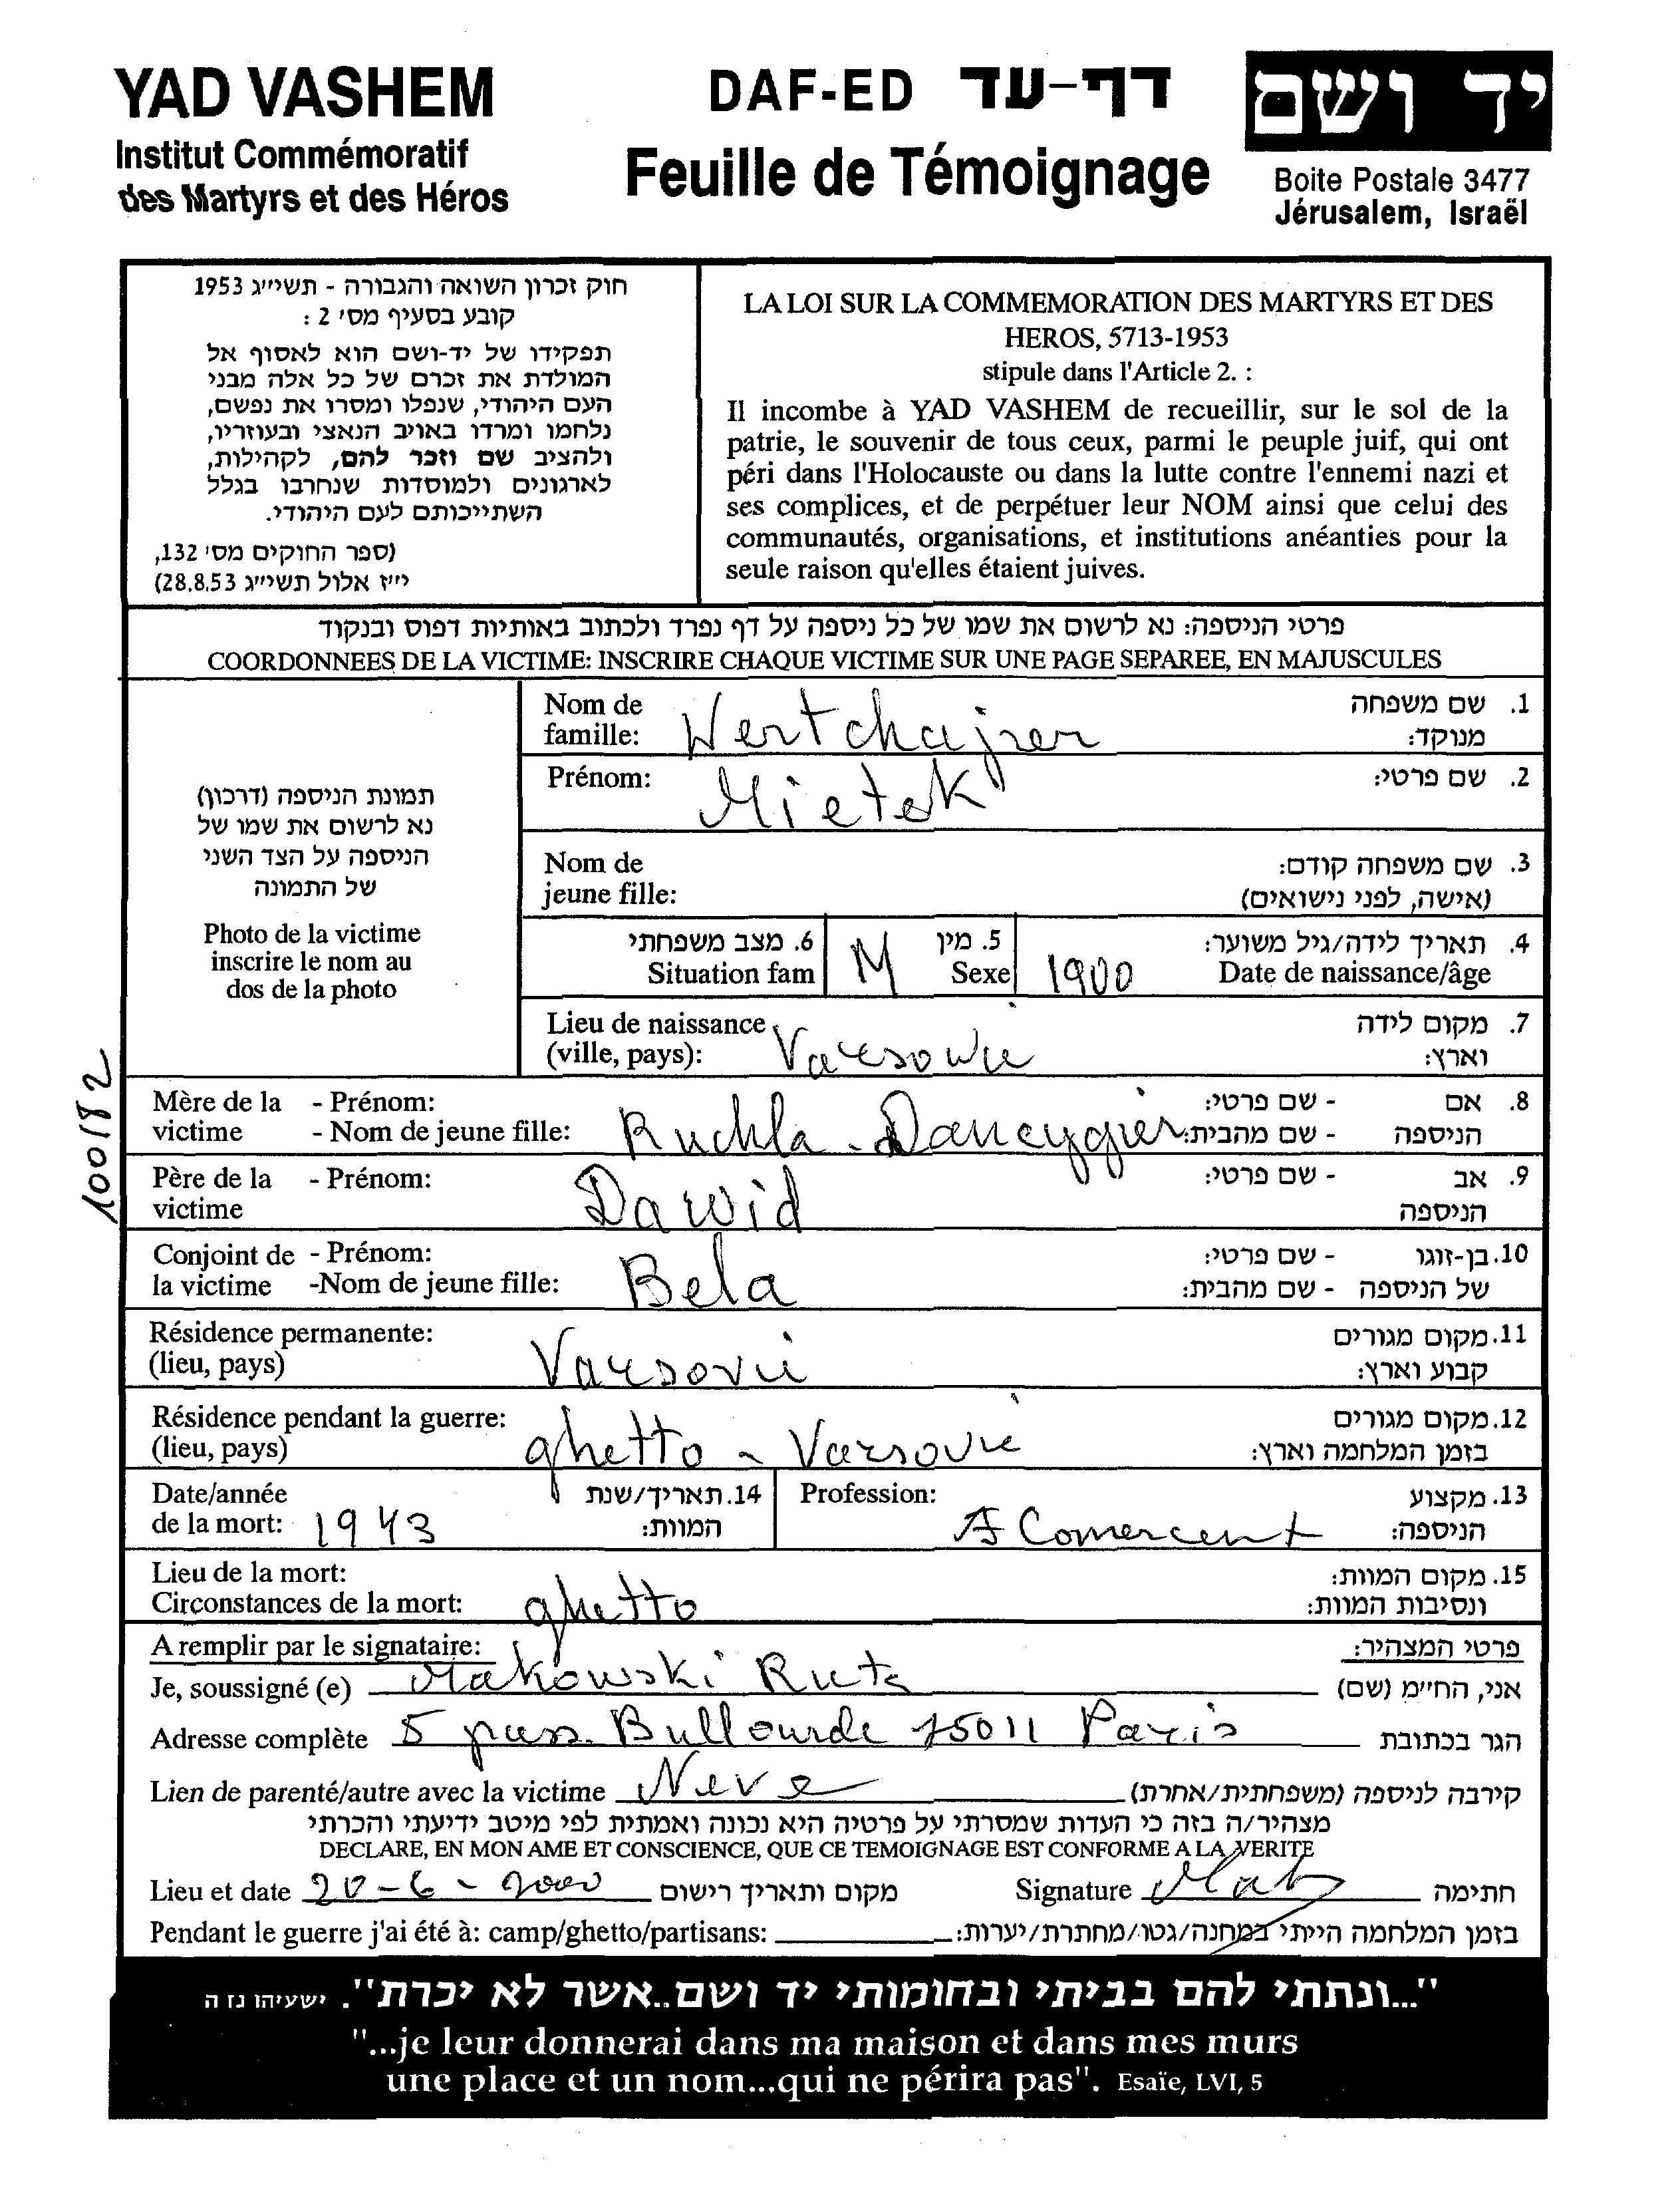 YAD VASHEM
Institut Commémoratif
des Martyrs et des Héros
DAF-ED דף-עד
Feuille de Témoignage
יד ושם
Boite Postale 3477
Jérusalem, Israël
חוק זכרון השואה והגבורה - תשי״ג 1953
קובע בסעיף מס׳ 2 :
תפקידו של יד-ושם הוא לאסוף אל
המולדת את זכרם של כל אלה מבני
העם היהודי, שנפלו ומסרו את נפשם,
נלחמו ומרדו באויב הנאצי ובעוזריו,
ולהציב שם וזכר להם, לקהילות,
לארגונים ולמוסדות שנחרבו בגלל
השתייכותם לעם היהודי.
(ספר החוקים מס׳ 132,
י״ז אלול תשי״ג 28.8.53)
LA LOI SUR LA COMMEMORATION DES MARTYRS ET DES
HEROS, 5713-1953
stipule dans l'Article 2. :
Il incombe à YAD VASHEM de recueillir, sur le sol de la
patrie, le souvenir de tous ceux, parmi le peuple juif, qui ont
péri dans l'Holocauste ou dans la lutte contre l'ennemi nazi et
ses complices, et de perpétuer leur NOM ainsi que celui des
communautés, organisations, et institutions anéanties pour la
seule raison qu'elles étaient juives.
פרטי הניספה: נא לרשום את שמו של כל ניספה על דף נפרד ולכתוב באותיות דפוס ובנקוד
COORDONNEES DE LA VICTIME: INSCRIRE CHAQUE VICTIME SUR UNE PAGE SEPAREE, EN MAJUSCULES
תמונת הניספה (דרכון)
נא לרשום את שמו של
הניספה על הצד השני
של התמונה
Photo de la victime
inscrire le nom au
dos de la photo
Nom de famille: Wertchajzer 1. שם משפחה מנוקד:
Prénom: Mietek 2. שם פרטי:
Nom de jeune fille: 3. שם משפחה קודם: (אישה, לפני נישואים)
6. מצב משפחתי Situation fam M 5. מין Sexe 1900 4. תאריך לידה/גיל משוער: Date de naissance/âge
Lieu de naissance (ville, pays): Varsowie 7. מקום לידה וארץ:
100182
Mère de la victime - Prénom: - Nom de jeune fille: Ruchla - Dancygier 8. אם הניספה - שם פרטי: - שם מהבית:
Père de la victime - Prénom: Dawid 9. אב הניספה - שם פרטי:
Conjoint de la victime - Prénom: -Nom de jeune fille: Bela 10. בן-זוגו של הניספה - שם פרטי: - שם מהבית:
Résidence permanente: (lieu, pays) Varsovi 11. מקום מגורים קבוע וארץ:
Résidence pendant la guerre: (lieu, pays) ghetto - Varsovie 12. מקום מגורים בזמן המלחמה וארץ:
Date/année de la mort: 1943 14. תאריך/שנת המוות: Profession: Comercent 13. מקצוע הניספה:
Lieu de la mort: Circonstances de la mort: ghetto 15. מקום המוות: ונסיבות המוות:
A remplir par le signataire: פרטי המצהיר:
Je, soussigné (e) Makowski Ruta אני, החי״מ (שם)
Adresse complète 5 pass. Bullourde 75011 Paris הגר בכתובת
Lien de parenté/autre avec la victime Neve קירבה לניספה (משפחתית/אחרת)
מצהיר/ה בזה כי העדות שמסרתי על פרטיה היא נכונה ואמתית לפי מיטב ידיעתי והכרתי
DECLARE, EN MON AME ET CONSCIENCE, QUE CE TEMOIGNAGE EST CONFORME A LA VERITE
Lieu et date 20-6-2000 מקום ותאריך רישום Signature חתימה
Pendant le guerre j'ai été à: camp/ghetto/partisans: בזמן המלחמה הייתי במחנה/גטו/מחתרת/יערות:
"...ונתתי להם בביתי ובחומותי יד ושם..אשר לא יכרת". ישעיהו נז ה
"...je leur donnerai dans ma maison et dans mes murs
une place et un nom...qui ne périra pas". Esaïe, LVI, 5